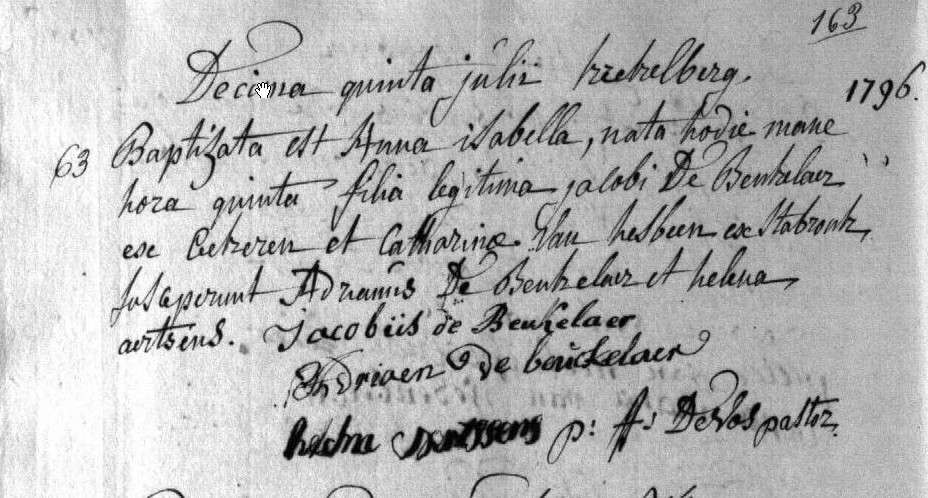 163
Decima quinta julii krekelberg.
1796.
63 Baptizata est Anna isabella, nata hodie mane
hora quinta filia legitima jacobi De Beukelaer
ex Eekeren et Catharinæ Van hesbeen ex Stabroek,
susceperunt Adrianus De Beukelaer et helena
aertsens. Jacobüs de Beukelaer
Adriaen de beückelaer
p: Fs Devos pastor.